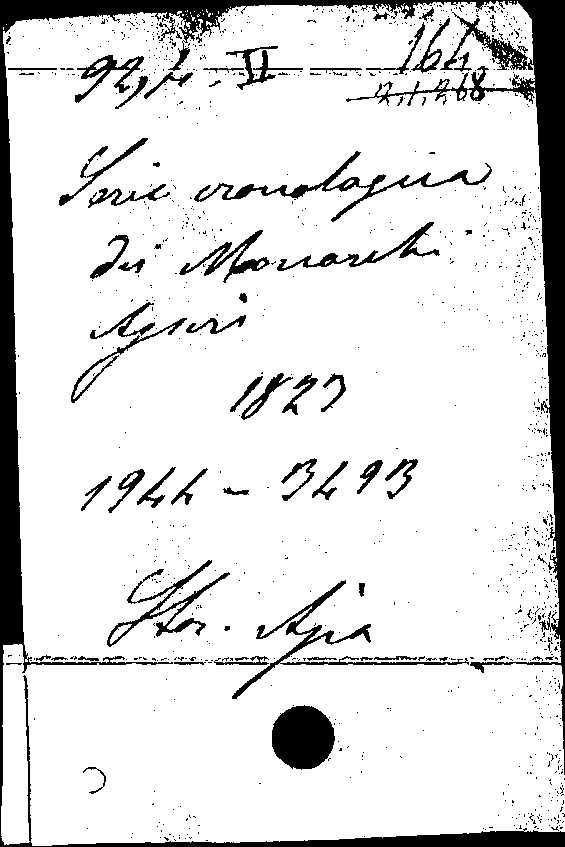 92, 4. II
164
2.1.268
Serie cronologica
dei Monarchi
Assiri
1823
1944 - 3493
Stor. Asia